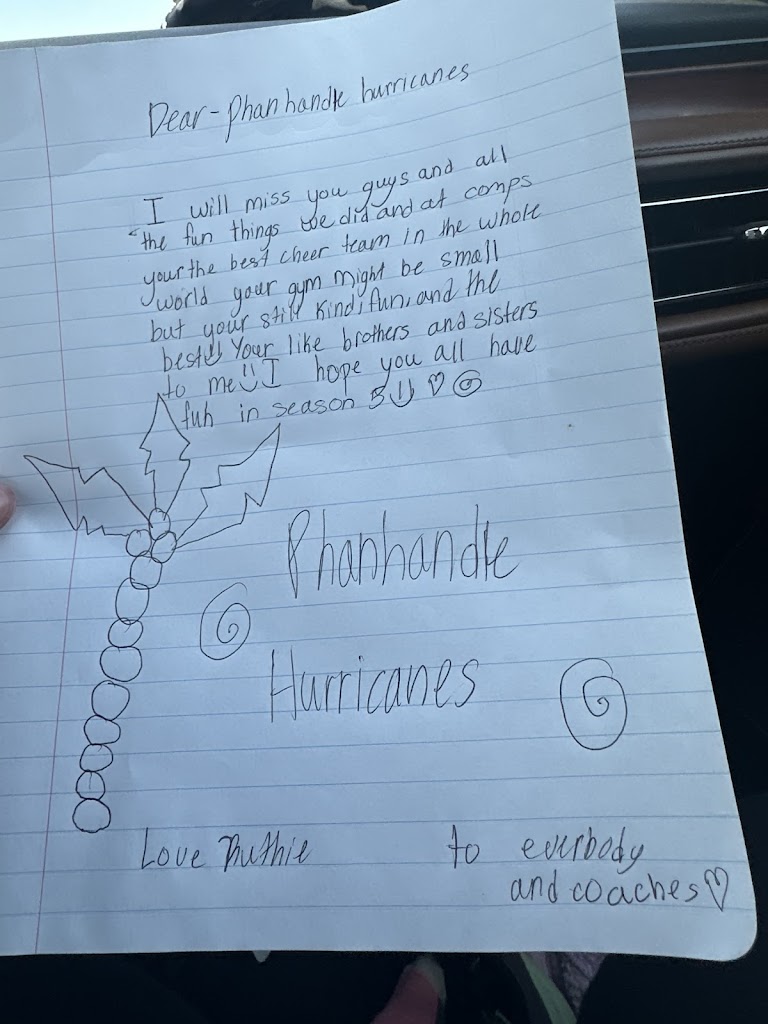 Dear-Phanhandle hurricanes
I will miss you guys and all
the fun things we did and at comps
your the best cheer team in the whole
world your gym might be small
but your still Kind, fun, and the
best!! Your like brothers and sisters
to me I hope you all have
fuh in season 5
Phanhandle
Hurricanes
Love Ruthie
to everbody
and coaches